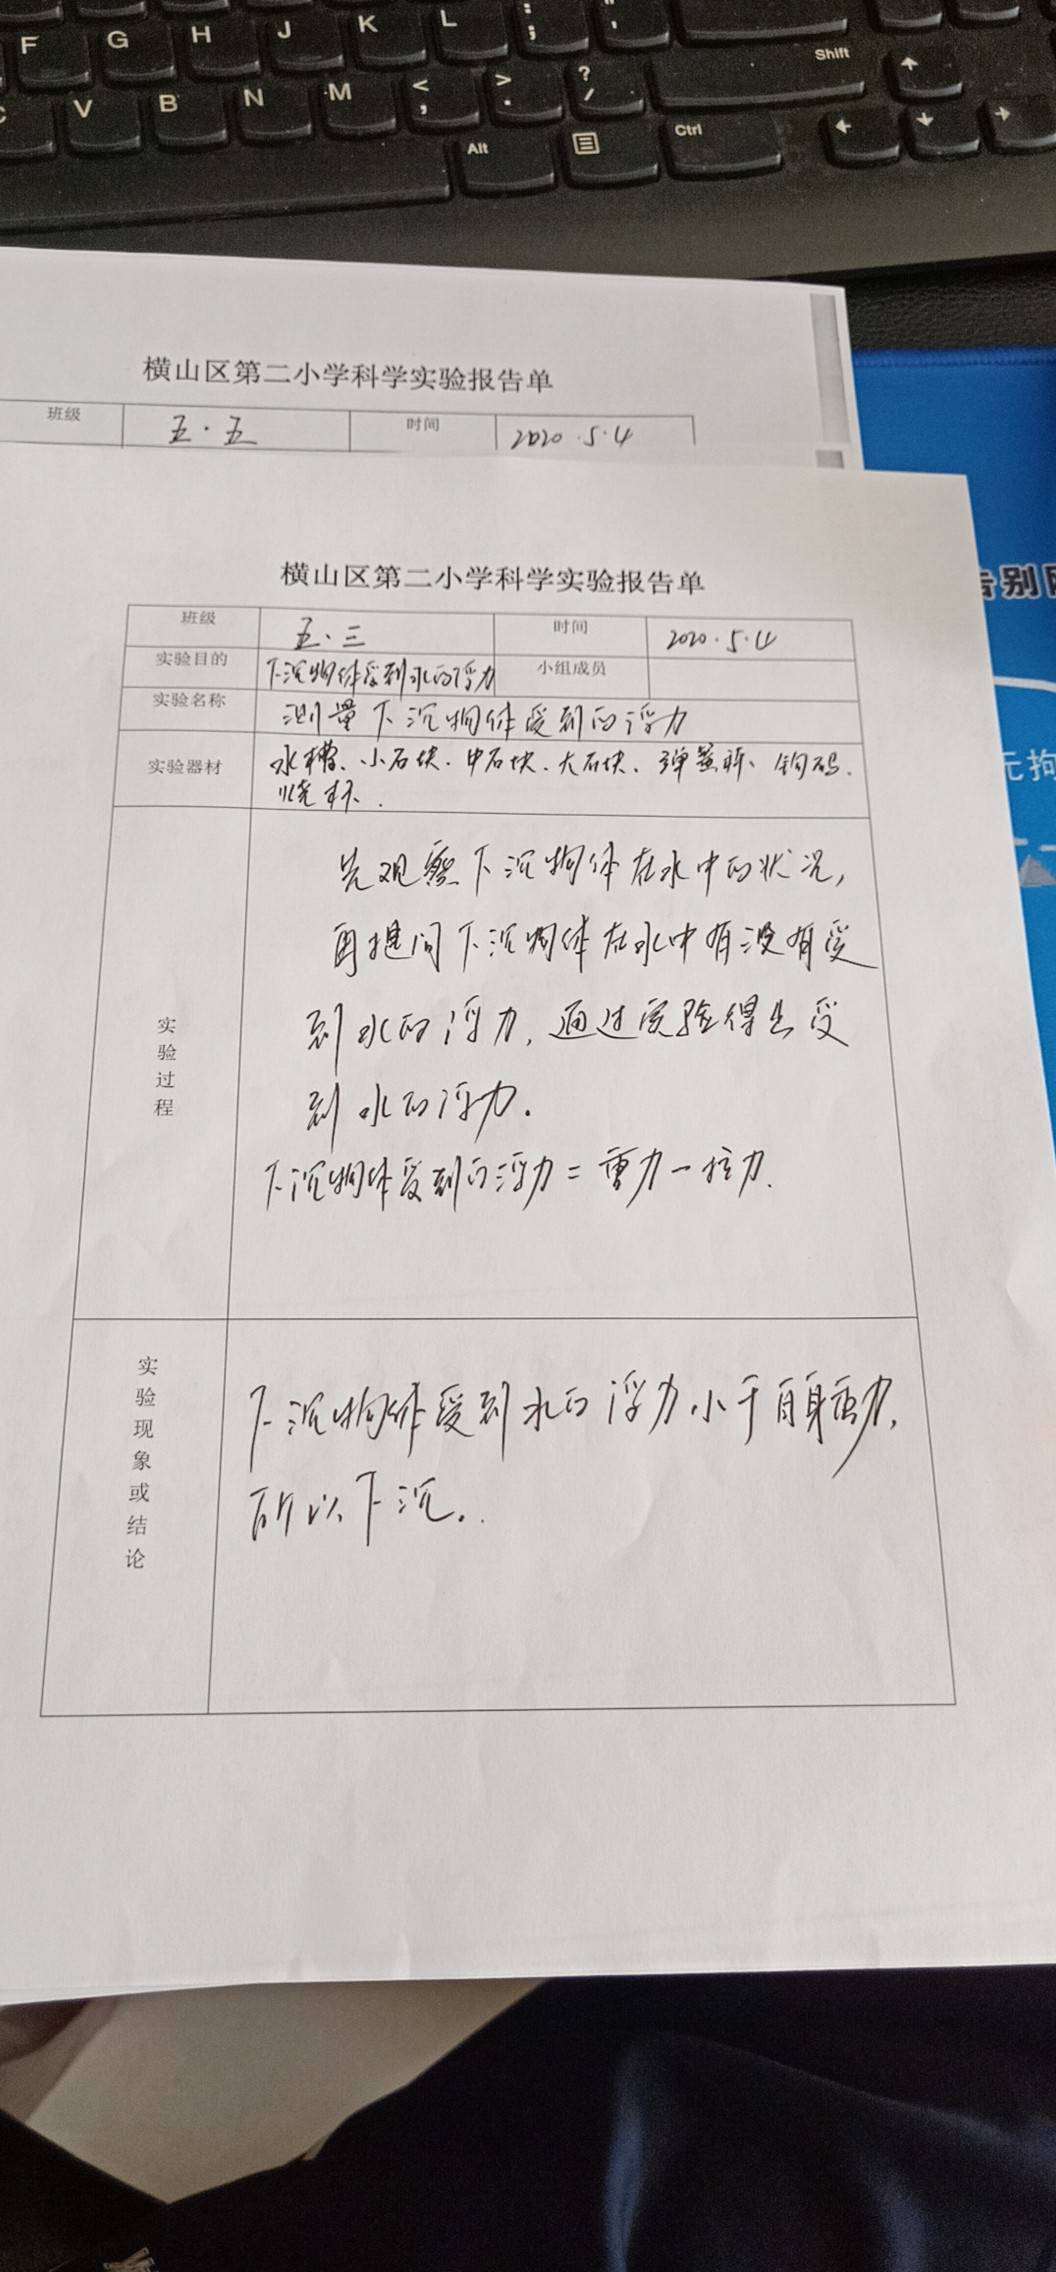 F G H J K L : ;
" '
Shift
V B N M < , > . ? /
Alt Ctrl
横山区第二小学科学实验报告单
班级 五.五 时间 2020.5.4
告别
横山区第二小学科学实验报告单
班级 五.三 时间 2020.5.4
实验目的 下沉物体受到水的浮力 小组成员
实验名称 测量下沉物体受到的浮力
无拘
实验器材 水槽、小石块.中石块、大石块、弹簧秤、钩码.
烧杯.
先观察下沉物体在水中的状况,
再提问下沉物体在水中有没有受
到水的浮力,通过实验得出受
到水的浮力.
下沉物体受到的浮力=重力-拉力.
实验过程
下沉物体受到水的浮力小于自身重力,
所以下沉.
实验现象或结论